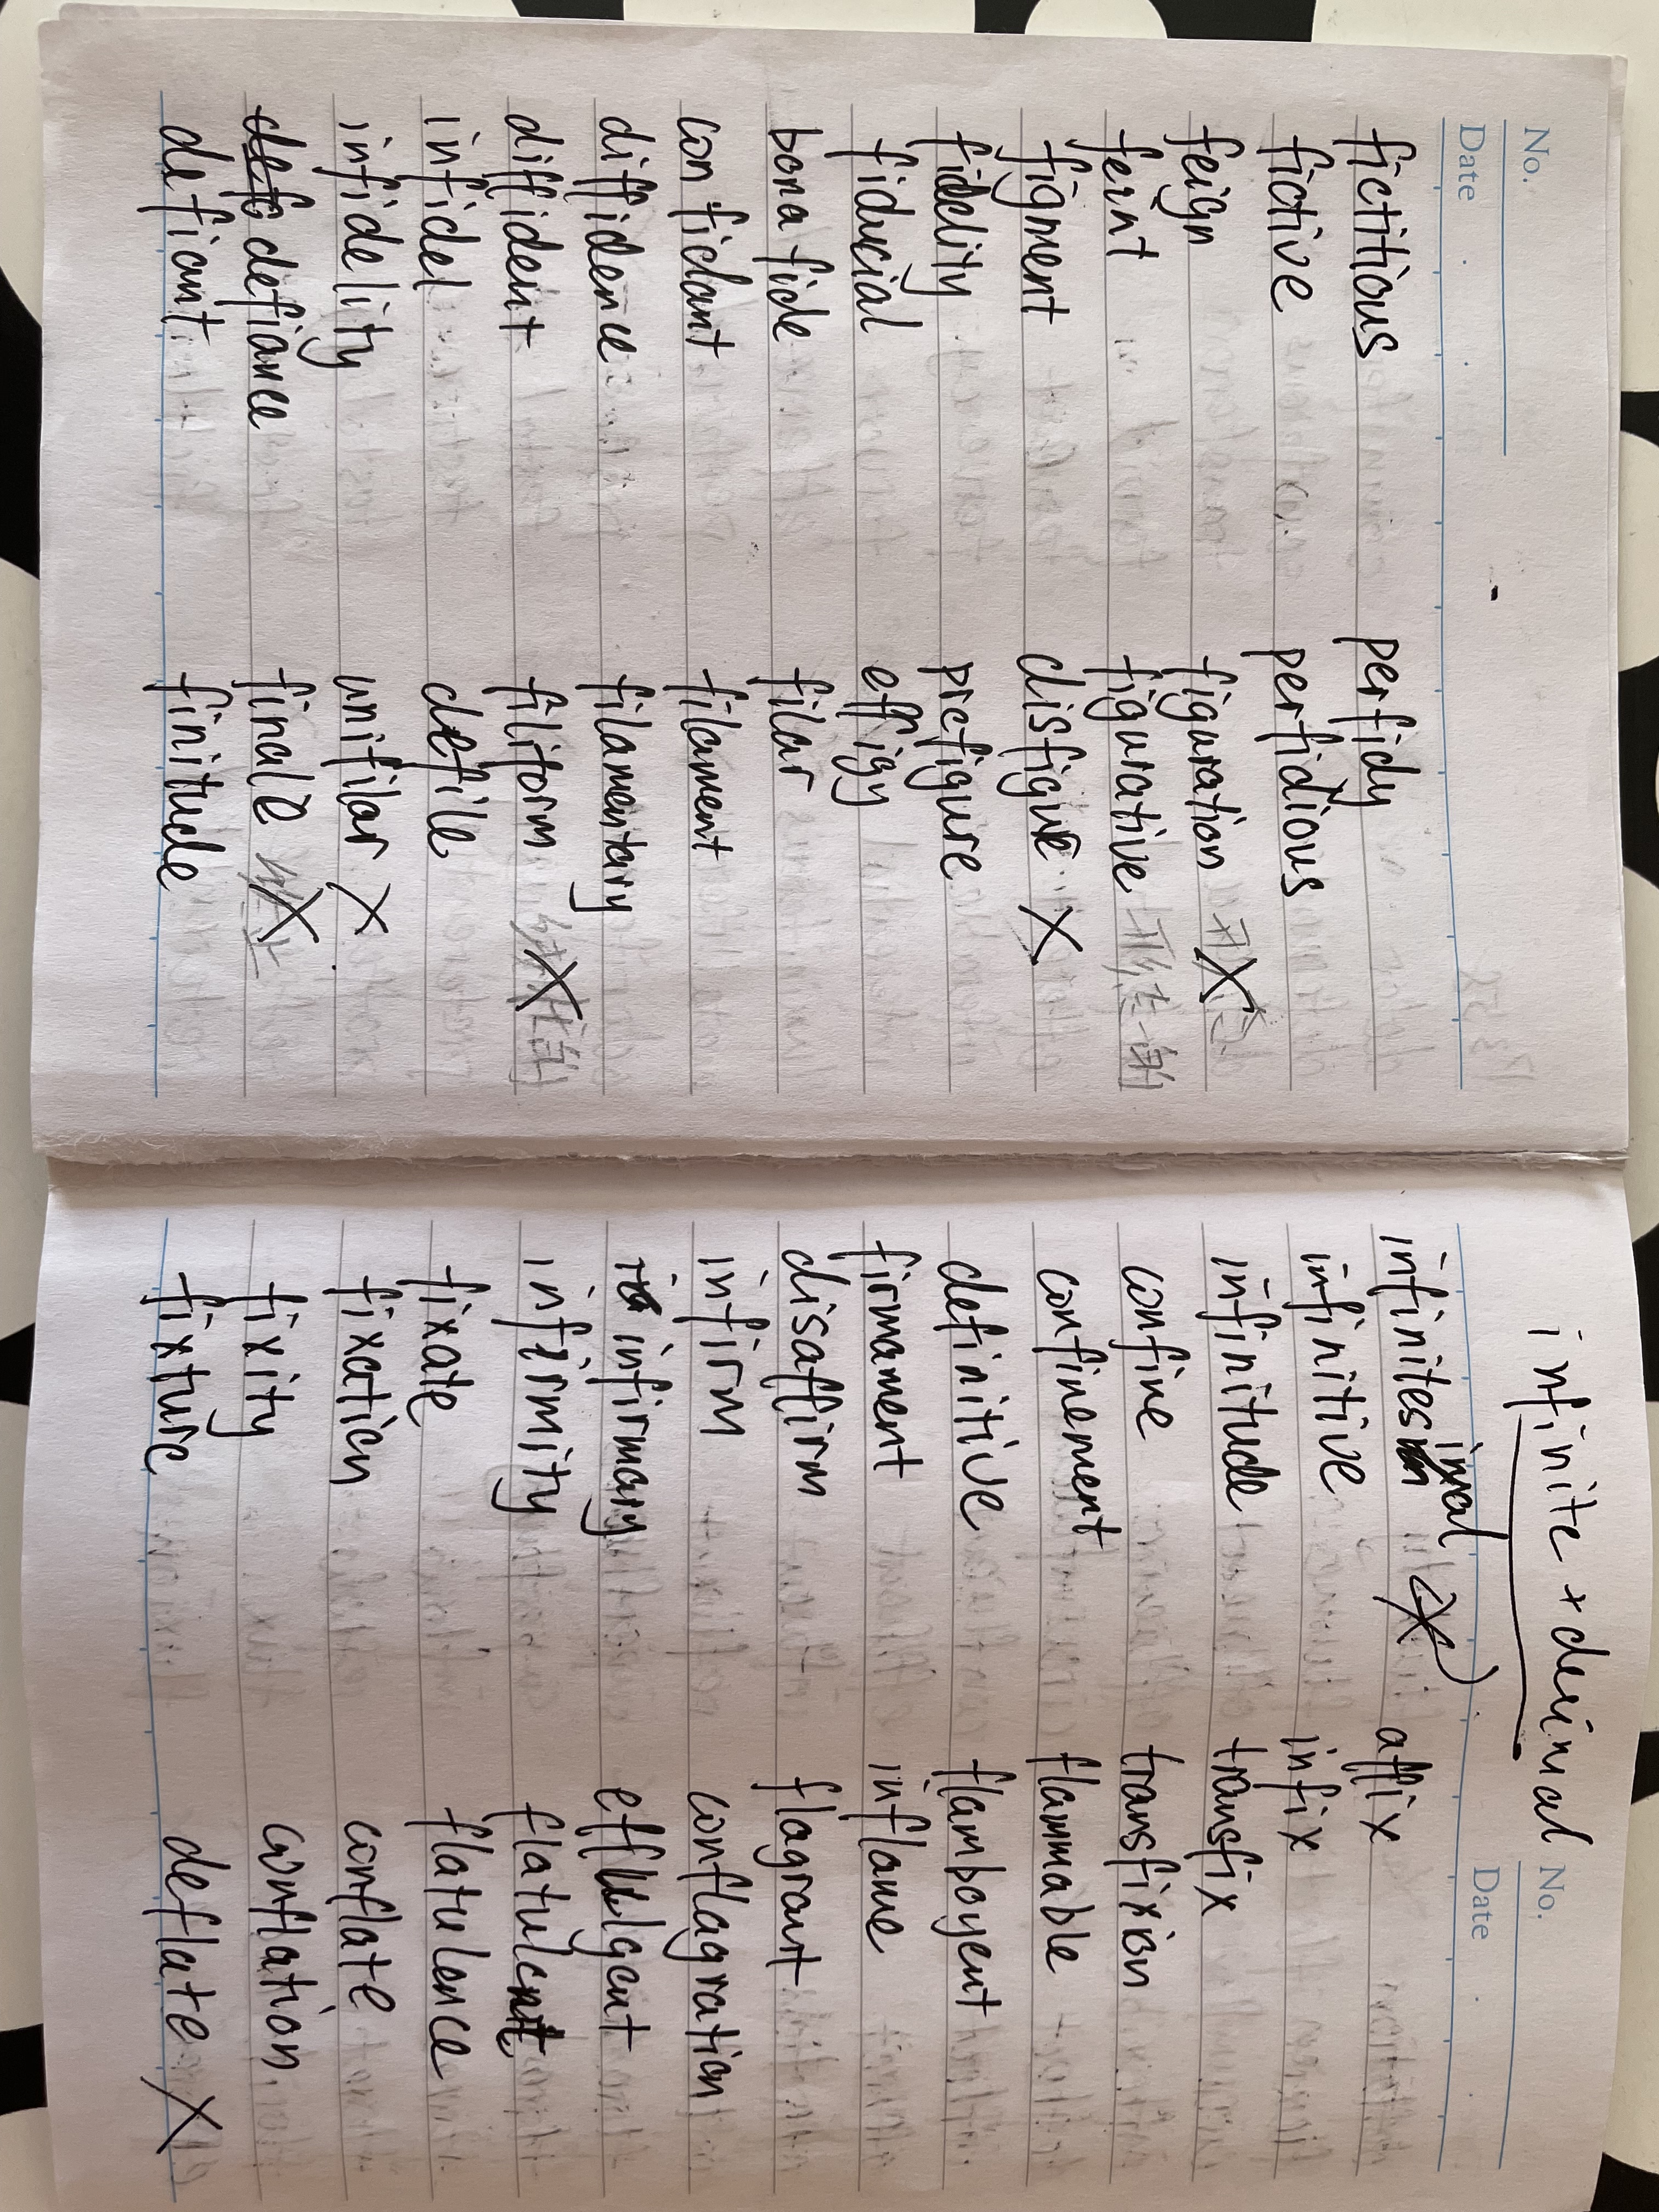 No.
Date
fictitious
fictive
feign
feint
figment
fidelity
fiducial
bona fide
confidant
diffidence
diffident
infidel
infidelity
defiance
defiant
perfidy
perfidious
figuration X
figurative 形态的
disfigure X
prefigure
effigy
filar
filament
filamentary
filiform X
defile
unifilar X
finale X
finitude
infinite + decimal
No.
Date
imal
infinites X
infinitive
infinitude
confine
confinement
definitive
firmament
disaffirm
infirm
infirmary
infirmity
fixate
fixation
fixity
fixture
affix
infix
transfix
transfixion
flammable
flamboyent
inflame
flagrant
conflagration
effulgent
flatulent
flatulence
conflate
conflation
deflate X